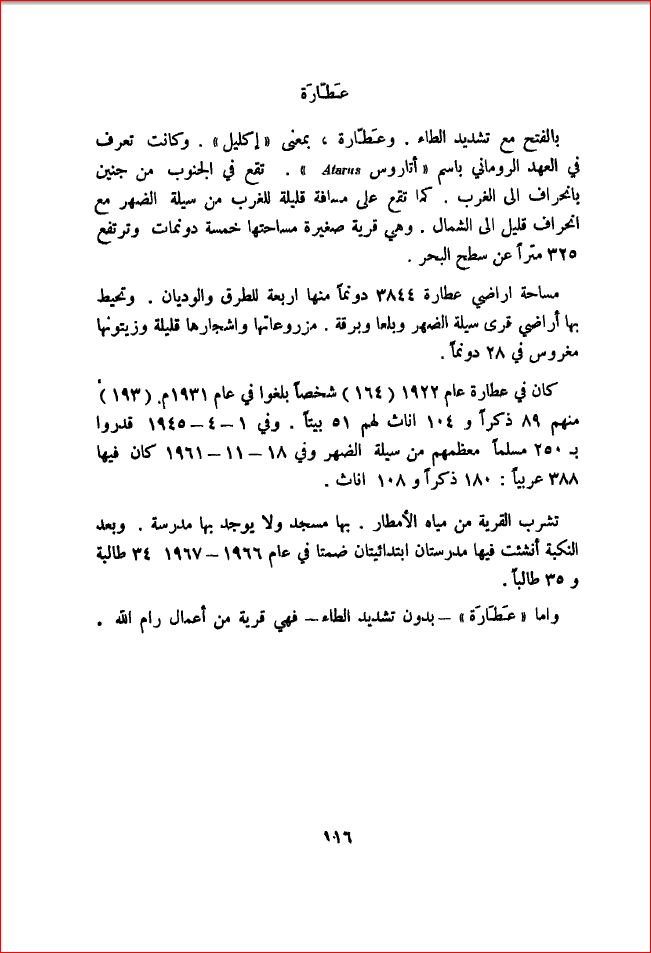 عَطّارَة
بالفتح مع تشديد الطاء . وعَطّارة ، بمعنى « إكليل » . وكانت تعرف
في العهد الروماني باسم « أتاروس Atarus » . تقع في الجنوب من جنين
بانحراف الى الغرب . كما تقع على مسافة قليلة للغرب من سيلة الضهر مع
انحراف قليل الى الشمال . وهي قرية صغيرة مساحتها خمسة دونمات وترتفع
٣٢٥ متراً عن سطح البحر .
مساحة اراضي عطارة ٣٨٤٤ دونماً منها اربعة للطرق والوديان . وتحيط
بها أراضي قرى سيلة الضهر وبلعا وبرقة . مزروعاتها واشجارها قليلة وزيتونها
مغروس في ٢٨ دونماً .
كان في عطارة عام ١٩٢٢ ( ١٦٤ ) شخصاً بلغوا في عام ١٩٣١م. ( ١٩٣ )
منهم ٨٩ ذكراً و ١٠٤ اناث لهم ٥١ بيتاً . وفي ١ – ٤ – ١٩٤٥ قدروا
بـ ٢٥٠ مسلماً معظمهم من سيلة الضهر وفي ١٨ – ١١ – ١٩٦١ كان فيها
٣٨٨ عربياً : ١٨٠ ذكراً و ١٠٨ اناث .
تشرب القرية من مياه الأمطار . بها مسجد ولا يوجد بها مدرسة . وبعد
النكبة أنشئت فيها مدرستان ابتدائيتان ضمتا في عام ١٩٦٦ – ١٩٦٧ ٣٤ طالبة
و ٣٥ طالباً .
واما « عَطَارَة » – بدون تشديد الطاء – فهي قرية من أعمال رام الله .
١٠١٦